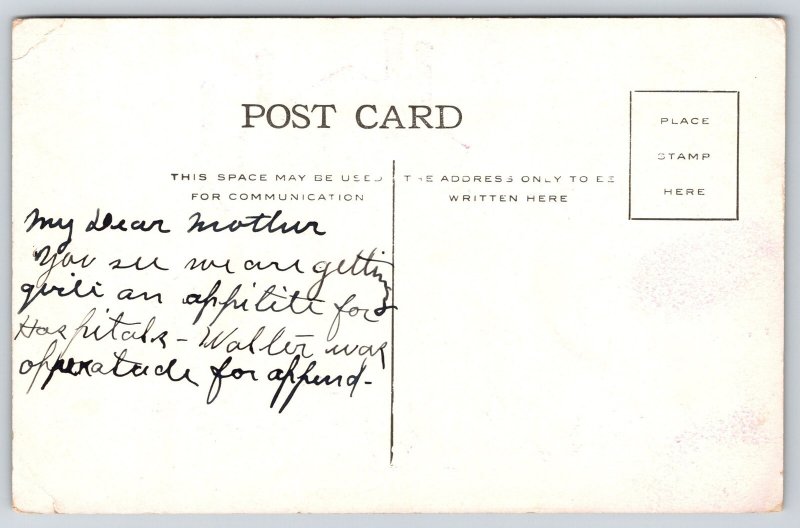 POST CARD
PLACE
STAMP
HERE
THIS SPACE MAY BE USED
FOR COMMUNICATION
THE ADDRESS ONLY TO BE
WRITTEN HERE
My Dear Mother
You see we are getting
quite an appitite for
Hospitals - Walter was
opperatude for append-